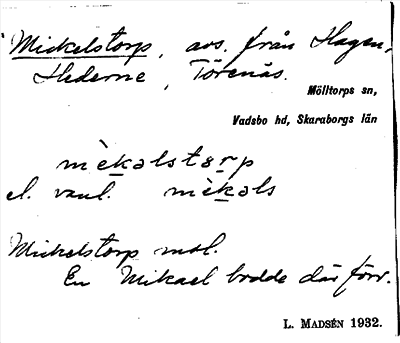 Mickelstorp, avs. från Hagen,
Hederne, Törenäs.
Mölltorps sn,
Vadsbo hd, Skaraborgs län
mèkəlstɔrp
el. vanl. mèkəls
Mickelstorp msl.
En Mikael bodde där förr.
L. MADSÉN 1932.